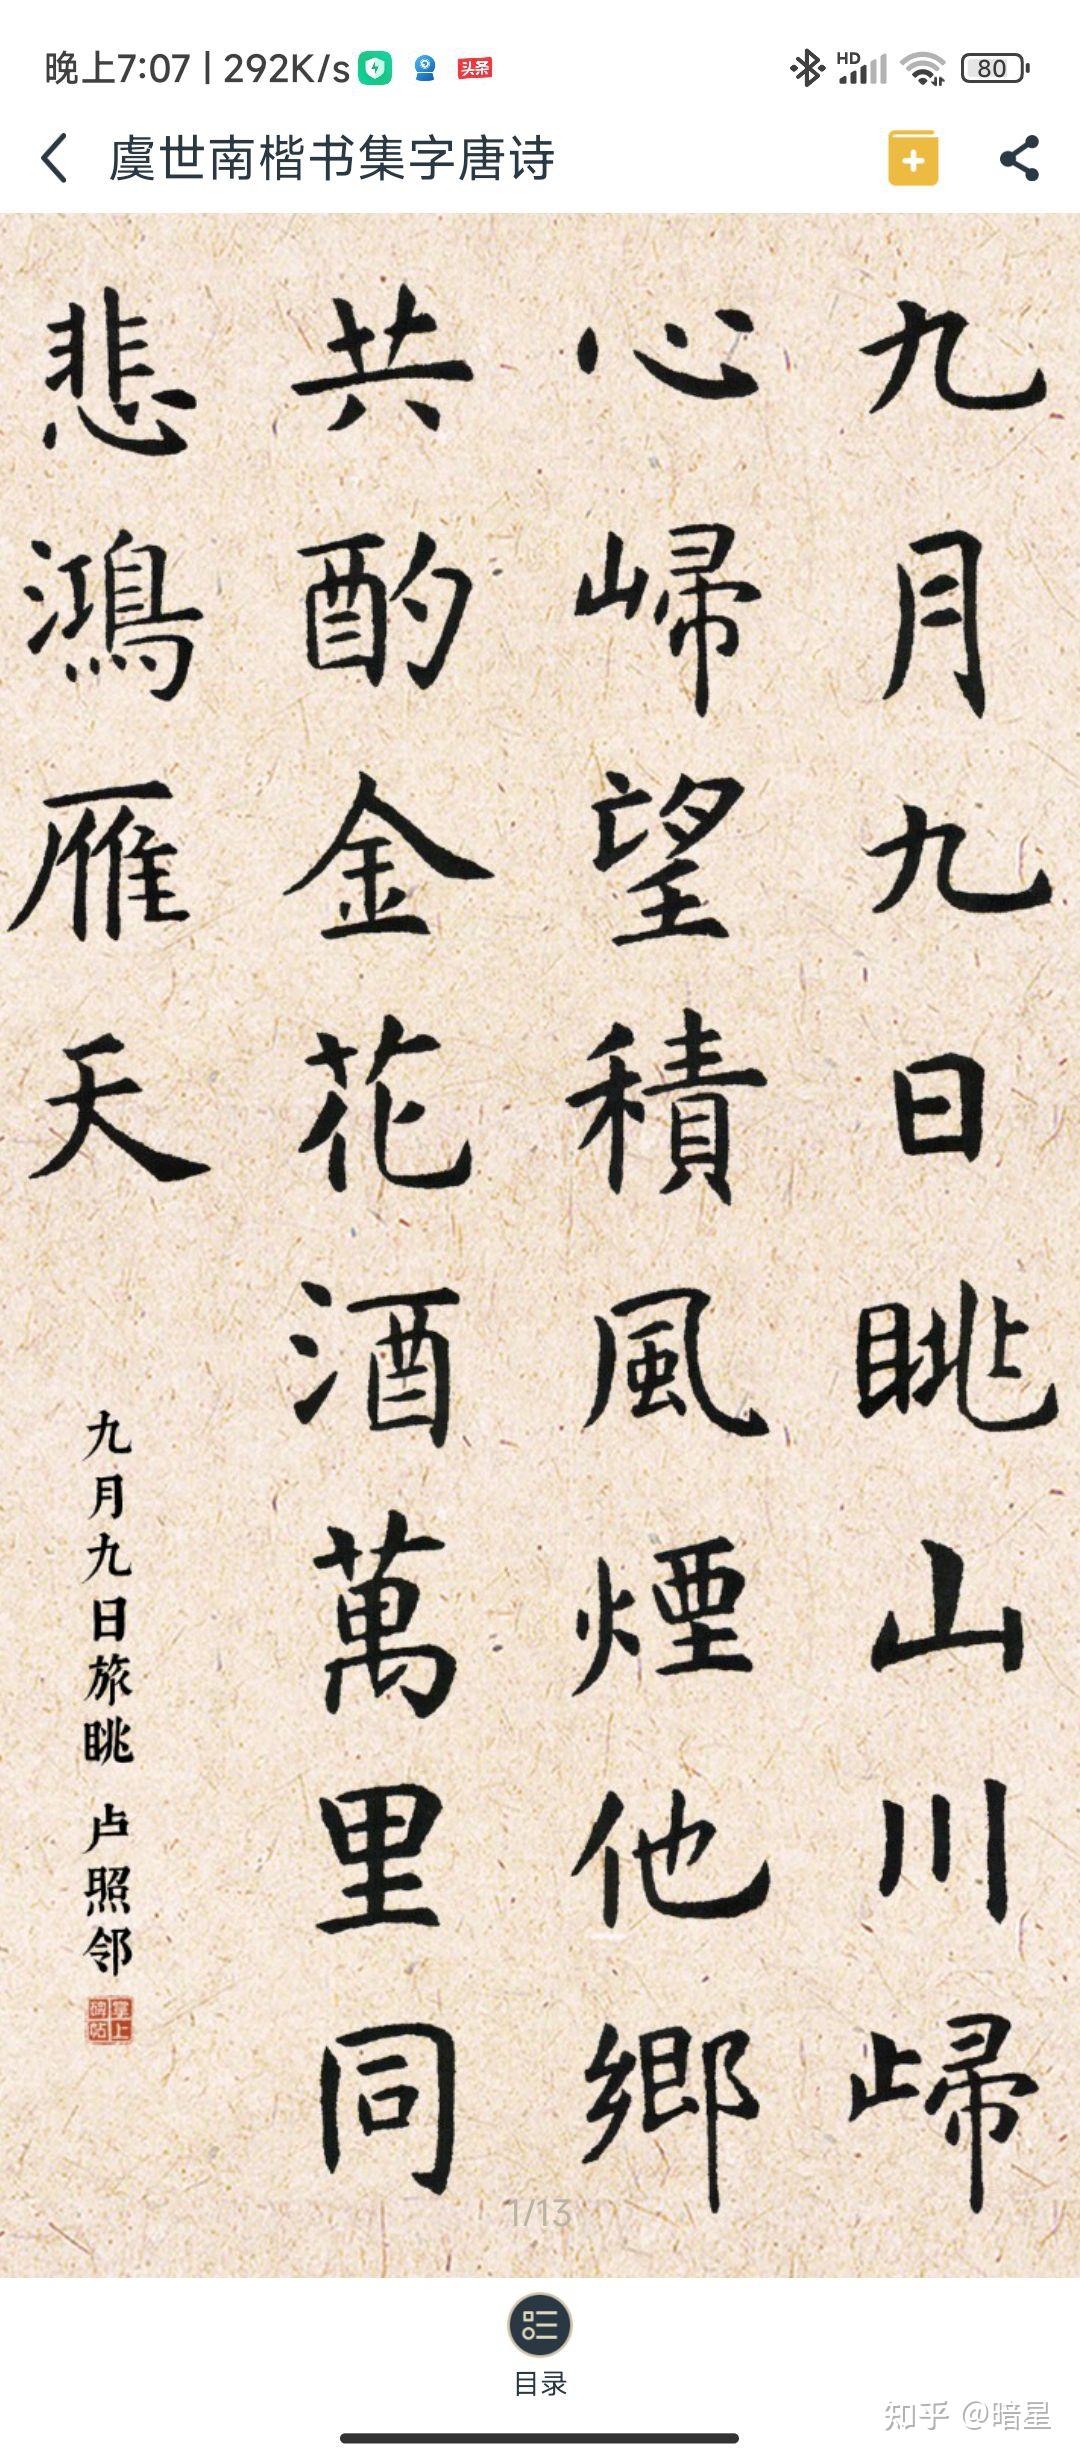 晚上7:07 | 292K/s 头条 HD 80
虞世南楷书集字唐诗
九月九日眺山川歸
心歸望積風煙他鄉
共酌金花酒萬里同
悲鴻雁天
九月九日旅眺 卢照邻
掌上碑帖
1/13
目录
知乎 @暗星